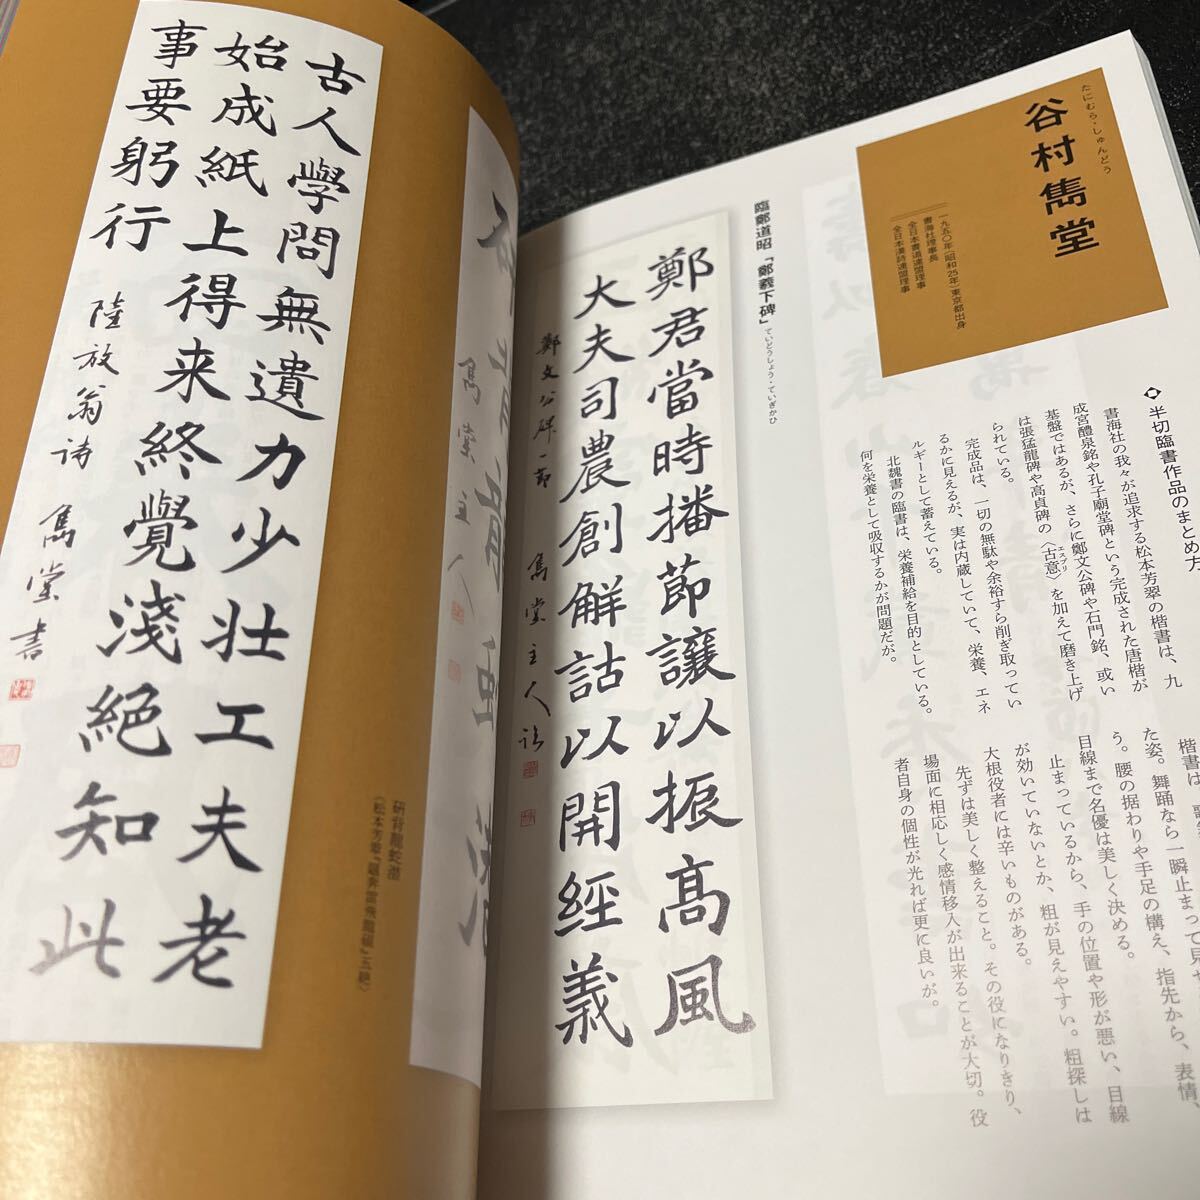 たにむら・しゅんどう
谷村雋堂
一九五〇年(昭和25年)東京都出身
書海社理事長
全日本書道連盟理事
全日本漢詩連盟理事
◇半切臨書作品のまとめ方
書海社の我々が追求する松本芳翠の楷書は、九
成宮醴泉銘や孔子廟堂碑という完成された唐楷が
基盤ではあるが、さらに鄭文公碑や石門銘、或い
は張猛龍碑や高貞碑の〈古意〉を加えて磨き上げ
エスプリ
られている。
完成品は、一切の無駄や余裕すら削ぎ取ってい
るかに見えるが、実は内蔵していて、栄養、エネ
ルギーとして蓄えている。
北魏書の臨書は、栄養補給を目的としている。
何を栄養として吸収するかが問題だが。
た姿。舞踊なら一瞬止まって見
う。腰の据わりや手足の構え、指先から、表情、
目線まで名優は美しく決める。
止まっているから、手の位置や形が悪い、目線
が効いていないとか、粗が見えやすい。粗探しは
大根役者には辛いものがある。
先ずは美しく整えること。その役になりきり、
場面に相応しく感情移入が出来ることが大切。役
者自身の個性が光れば更に良いが。
臨鄭道昭「鄭羲下碑」
ていどうしょう・ていぎかひ
鄭君當時播節讓以振髙風
大夫司農創解詁以開經義
鄭文公碑一節 雋堂主人臨
雋堂主人
研背龍蛇潜
古人學問無遺力少壮工夫老
始成紙上得来終覺淺絶知此
事要躬行
陸放翁詩 雋堂書